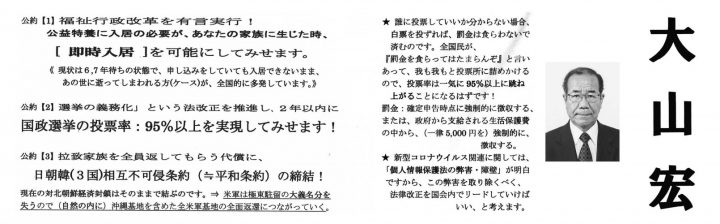 公約【1】福祉行政改革を有言実行！
公益特養に入居の必要が、あなたの家族に生じた時、
[ 即時入居 ]を可能にしてみせます。
《 現状は6,7年待ちの状態で、申し込みをしていても入居できないまま、
あの世に逝ってしまわれる方(ケース)が、全国的に多発しています。》
公約【2】選挙の義務化」という法改正を推進し、2年以内に
国政選挙の投票率：95％以上を実現してみせます！
公約【3】拉致家族を全員返してもらう代償に、
日朝韓(３国)相互不可侵条約（≒平和条約）の締結！
現在の対北朝鮮経済封鎖はそのままで結ぶのです。⇒ 米軍は極東駐留の大義名分を
失うので（自然の内に）沖縄基地を含めた全米軍基地の全面返還につながっていく。
★ 誰に投票していいか分からない場合、
白票を投ずれば、罰金は食らわないで
済むのです。全国民が、
『罰金を食らってはたまらんぞ』と言い
あって、我も我もと投票所に詰めかける
ので、投票率は一気に 95％以上に跳ね
上がることになるはずです！
罰金：確定申告時点に強制的に徴収する、
または、政府から支給される生活保護費
の中から、（一律 5,000円を）強制的に、
徴収する。
★ 新型コロナウイルス関連に関しては、
「個人情報保護法の弊害・障壁」が明白
ですから、この弊害を取り除くべく、
法律改正を国会内でリードしていけば
いい、と考えます。
大山宏